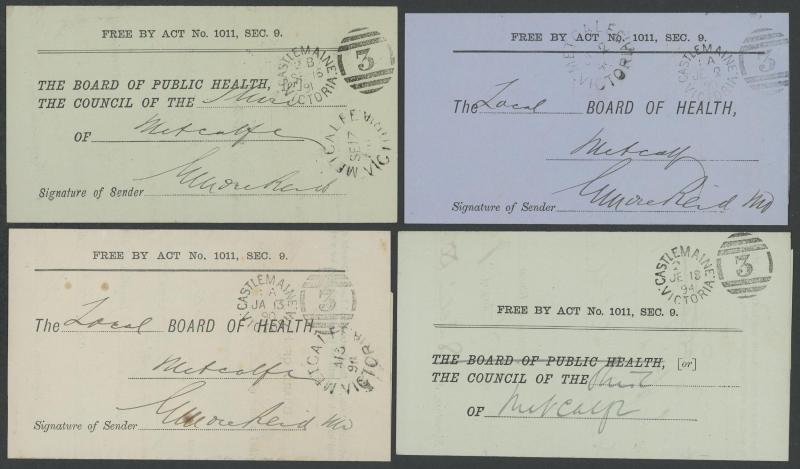 FREE BY ACT No. 1011, SEC. 9.
CASTLEMAINE
VICTORIA
91
3
THE BOARD OF PUBLIC HEALTH, [or]
THE COUNCIL OF THE Shire
OF Metcalfe
METCALFE
SE 17
VICTORIA
Signature of Sender
FREE BY ACT No. 1011, SEC. 9.
METCALFE
VICTORIA
CASTLEMAINE
A
JE
VICTORIA
3
The Local BOARD OF HEALTH,
Metcalf
Signature of Sender
FREE BY ACT No. 1011, SEC. 9.
CASTLEMAINE
A
JA 13
90
VICTORIA
3
The Local BOARD OF HEALTH
Metcalfe
METCALFE
VICTORIA
Signature of Sender
CASTLEMAINE
JE 18
94
VICTORIA
3
FREE BY ACT No. 1011, SEC. 9.
THE BOARD OF PUBLIC HEALTH, [or]
THE COUNCIL OF THE Shire
OF Metcalfe